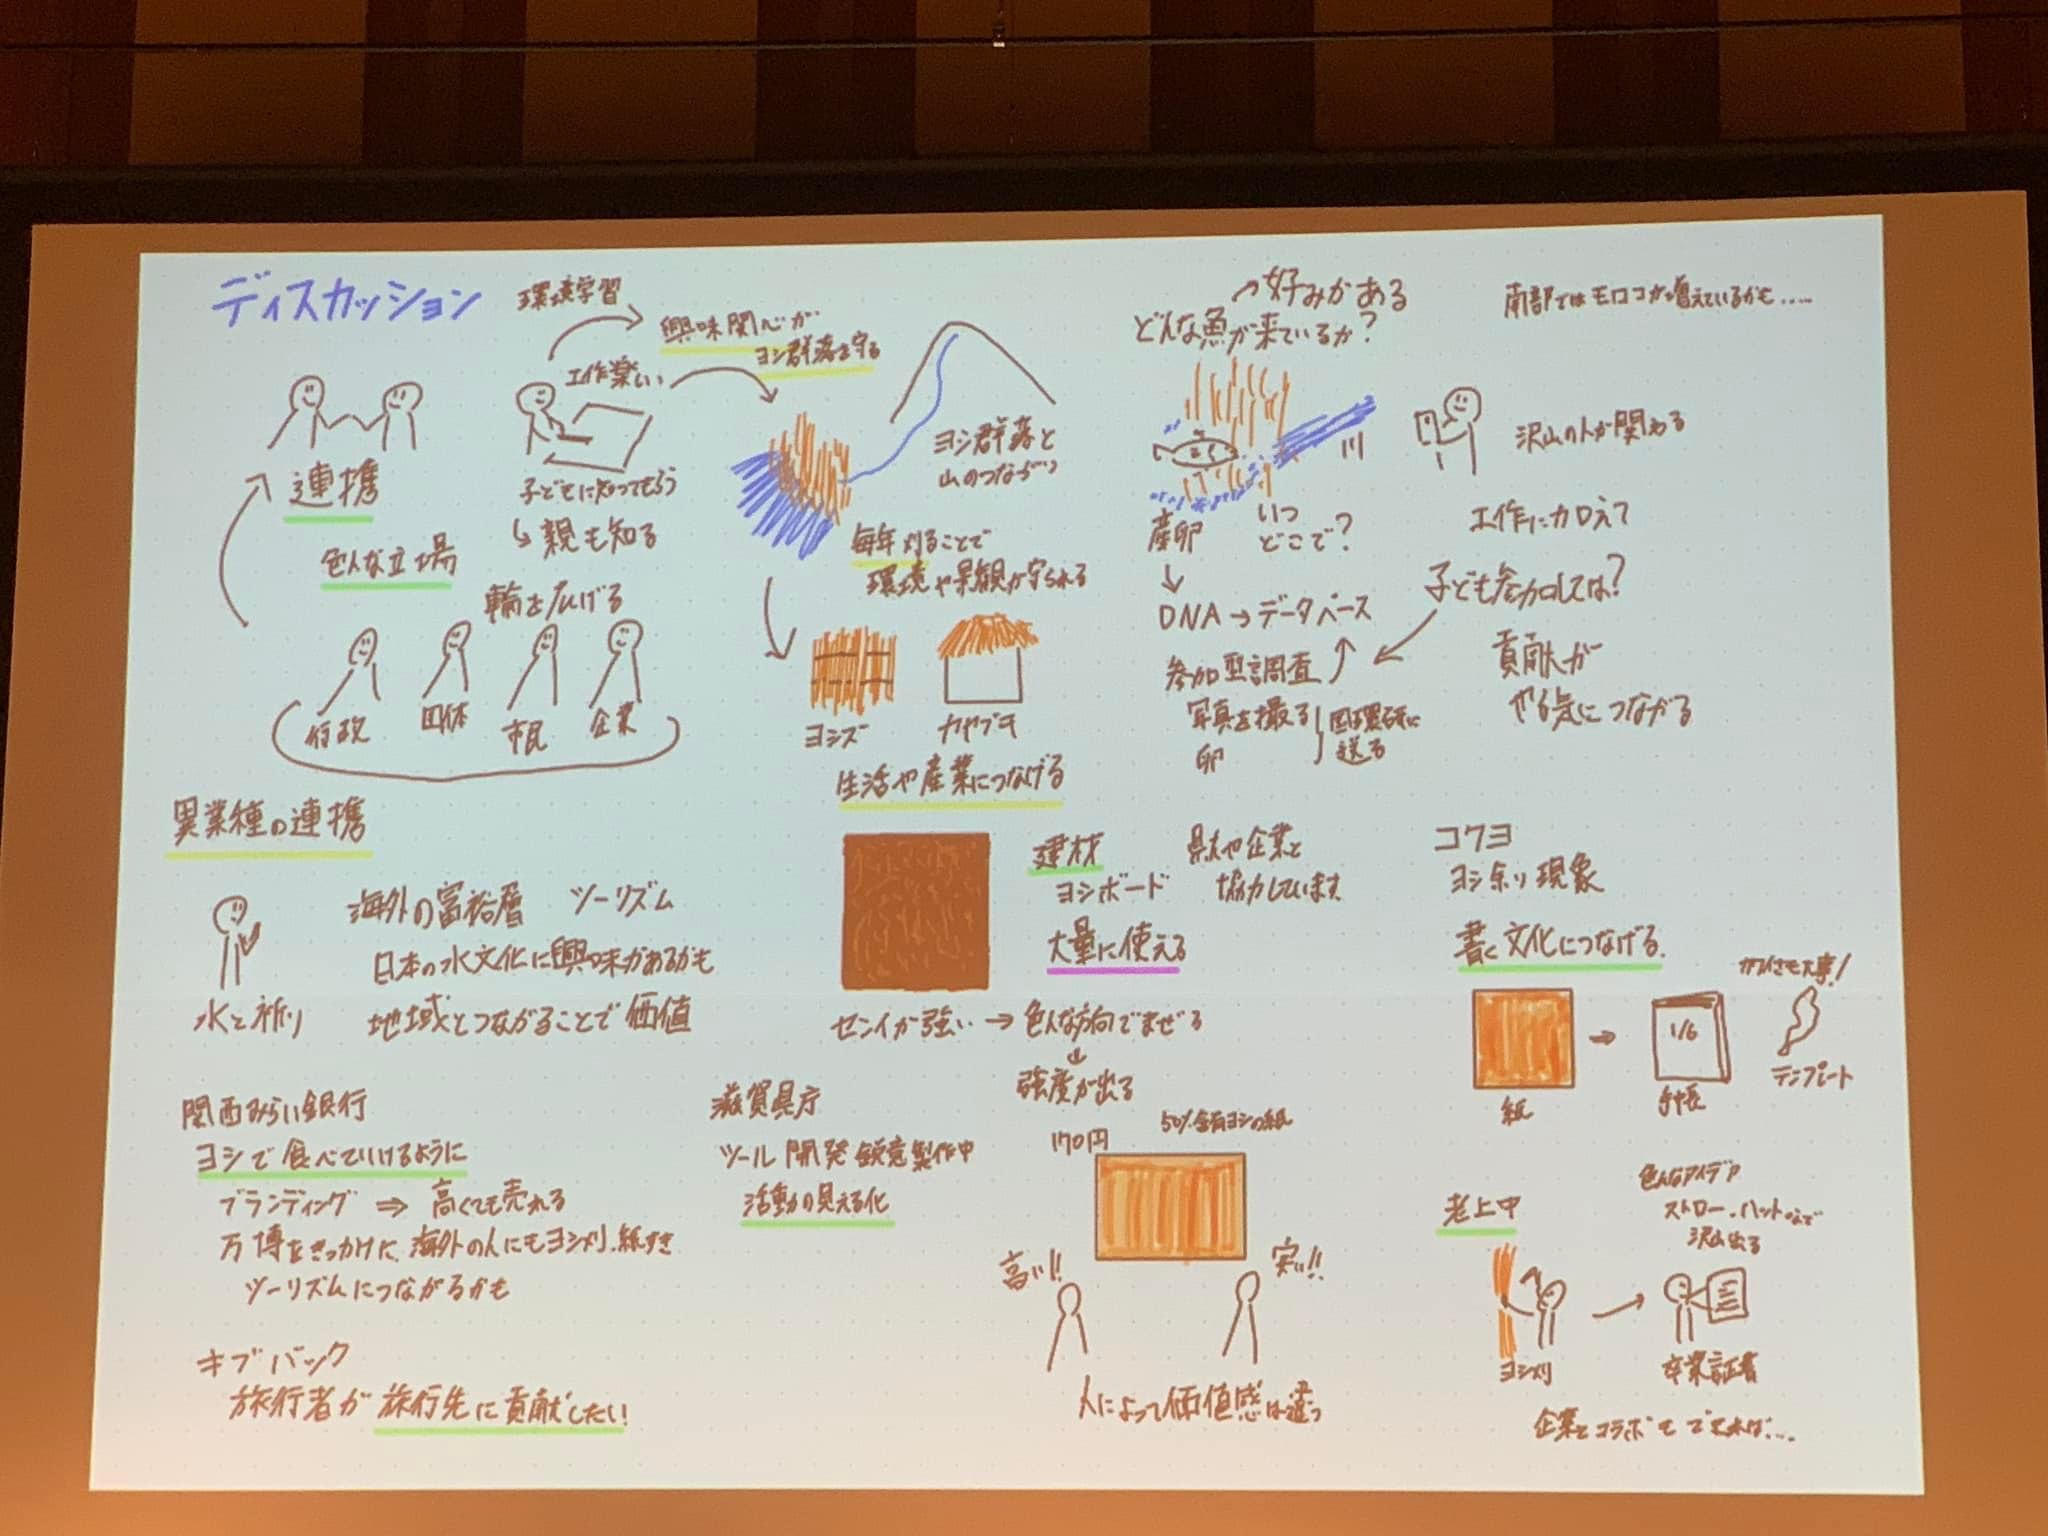 ディスカッション
環境学習
工作楽しい
興味関心が
ヨシ群落を守る
連携
色んな立場
子どもに知ってもらう
↳ 親も知る
輪を広げる
行政
団体
市民
企業
ヨシ群落と
山のつながり
毎年刈ることで
環境や景観が守られる
ヨシズ
カヤブキ
生活や産業につなげる
好みがある
どんな魚が来ているか?
川
産卵
いつ
どこで?
DNA→データベース
参加型調査
写真を撮る
卵
国環研に
送る
南部ではモロコが増えているかも.....
沢山の人が関わる
工作に加えて
子ども参加しては?
貢献が
やる気につながる
異業種の連携
水と祈り
海外の富裕層 ツーリズム
日本の水文化に興味があるかも
地域とつながることで価値
関西みらい銀行
ヨシで食べていけるように
ブランディング ⇒ 高くても売れる
万博をきっかけに、海外の人にもヨシ刈り、紙すき
ツーリズムにつながるかも
ギブバック
旅行者が旅行先に貢献したい!
建材
ヨシボード
大量に使える
県大や企業と
協力しています
センイが強い → 色んな方向でまぜる
↓
強度が出る
滋賀県庁
ツール開発 鋭意製作中
活動の見える化
170円
50%含有ヨシの紙
高い!!
安い!!
人によって価値感は違う
コクヨ
ヨシ余り現象
書く文化につなげる
カワイさも大事!
紙
1/6
手帳
テンプレート
老上中
色んなアイデア
ストロー、ハットなど
沢山出る
ヨシ刈り
卒業証書
企業とコラボもできれば....